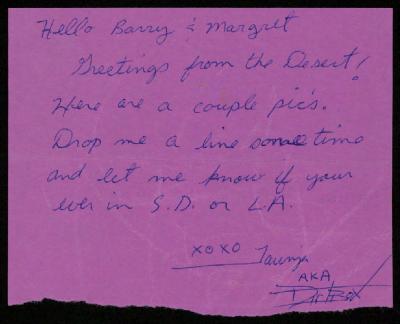 Hello Barry & Margret
Greetings from the Desert!
Here are a couple pic's.
Drop me a line sometime
and let me know if your
ever in S.D. or L.A.
XOXO
AKA